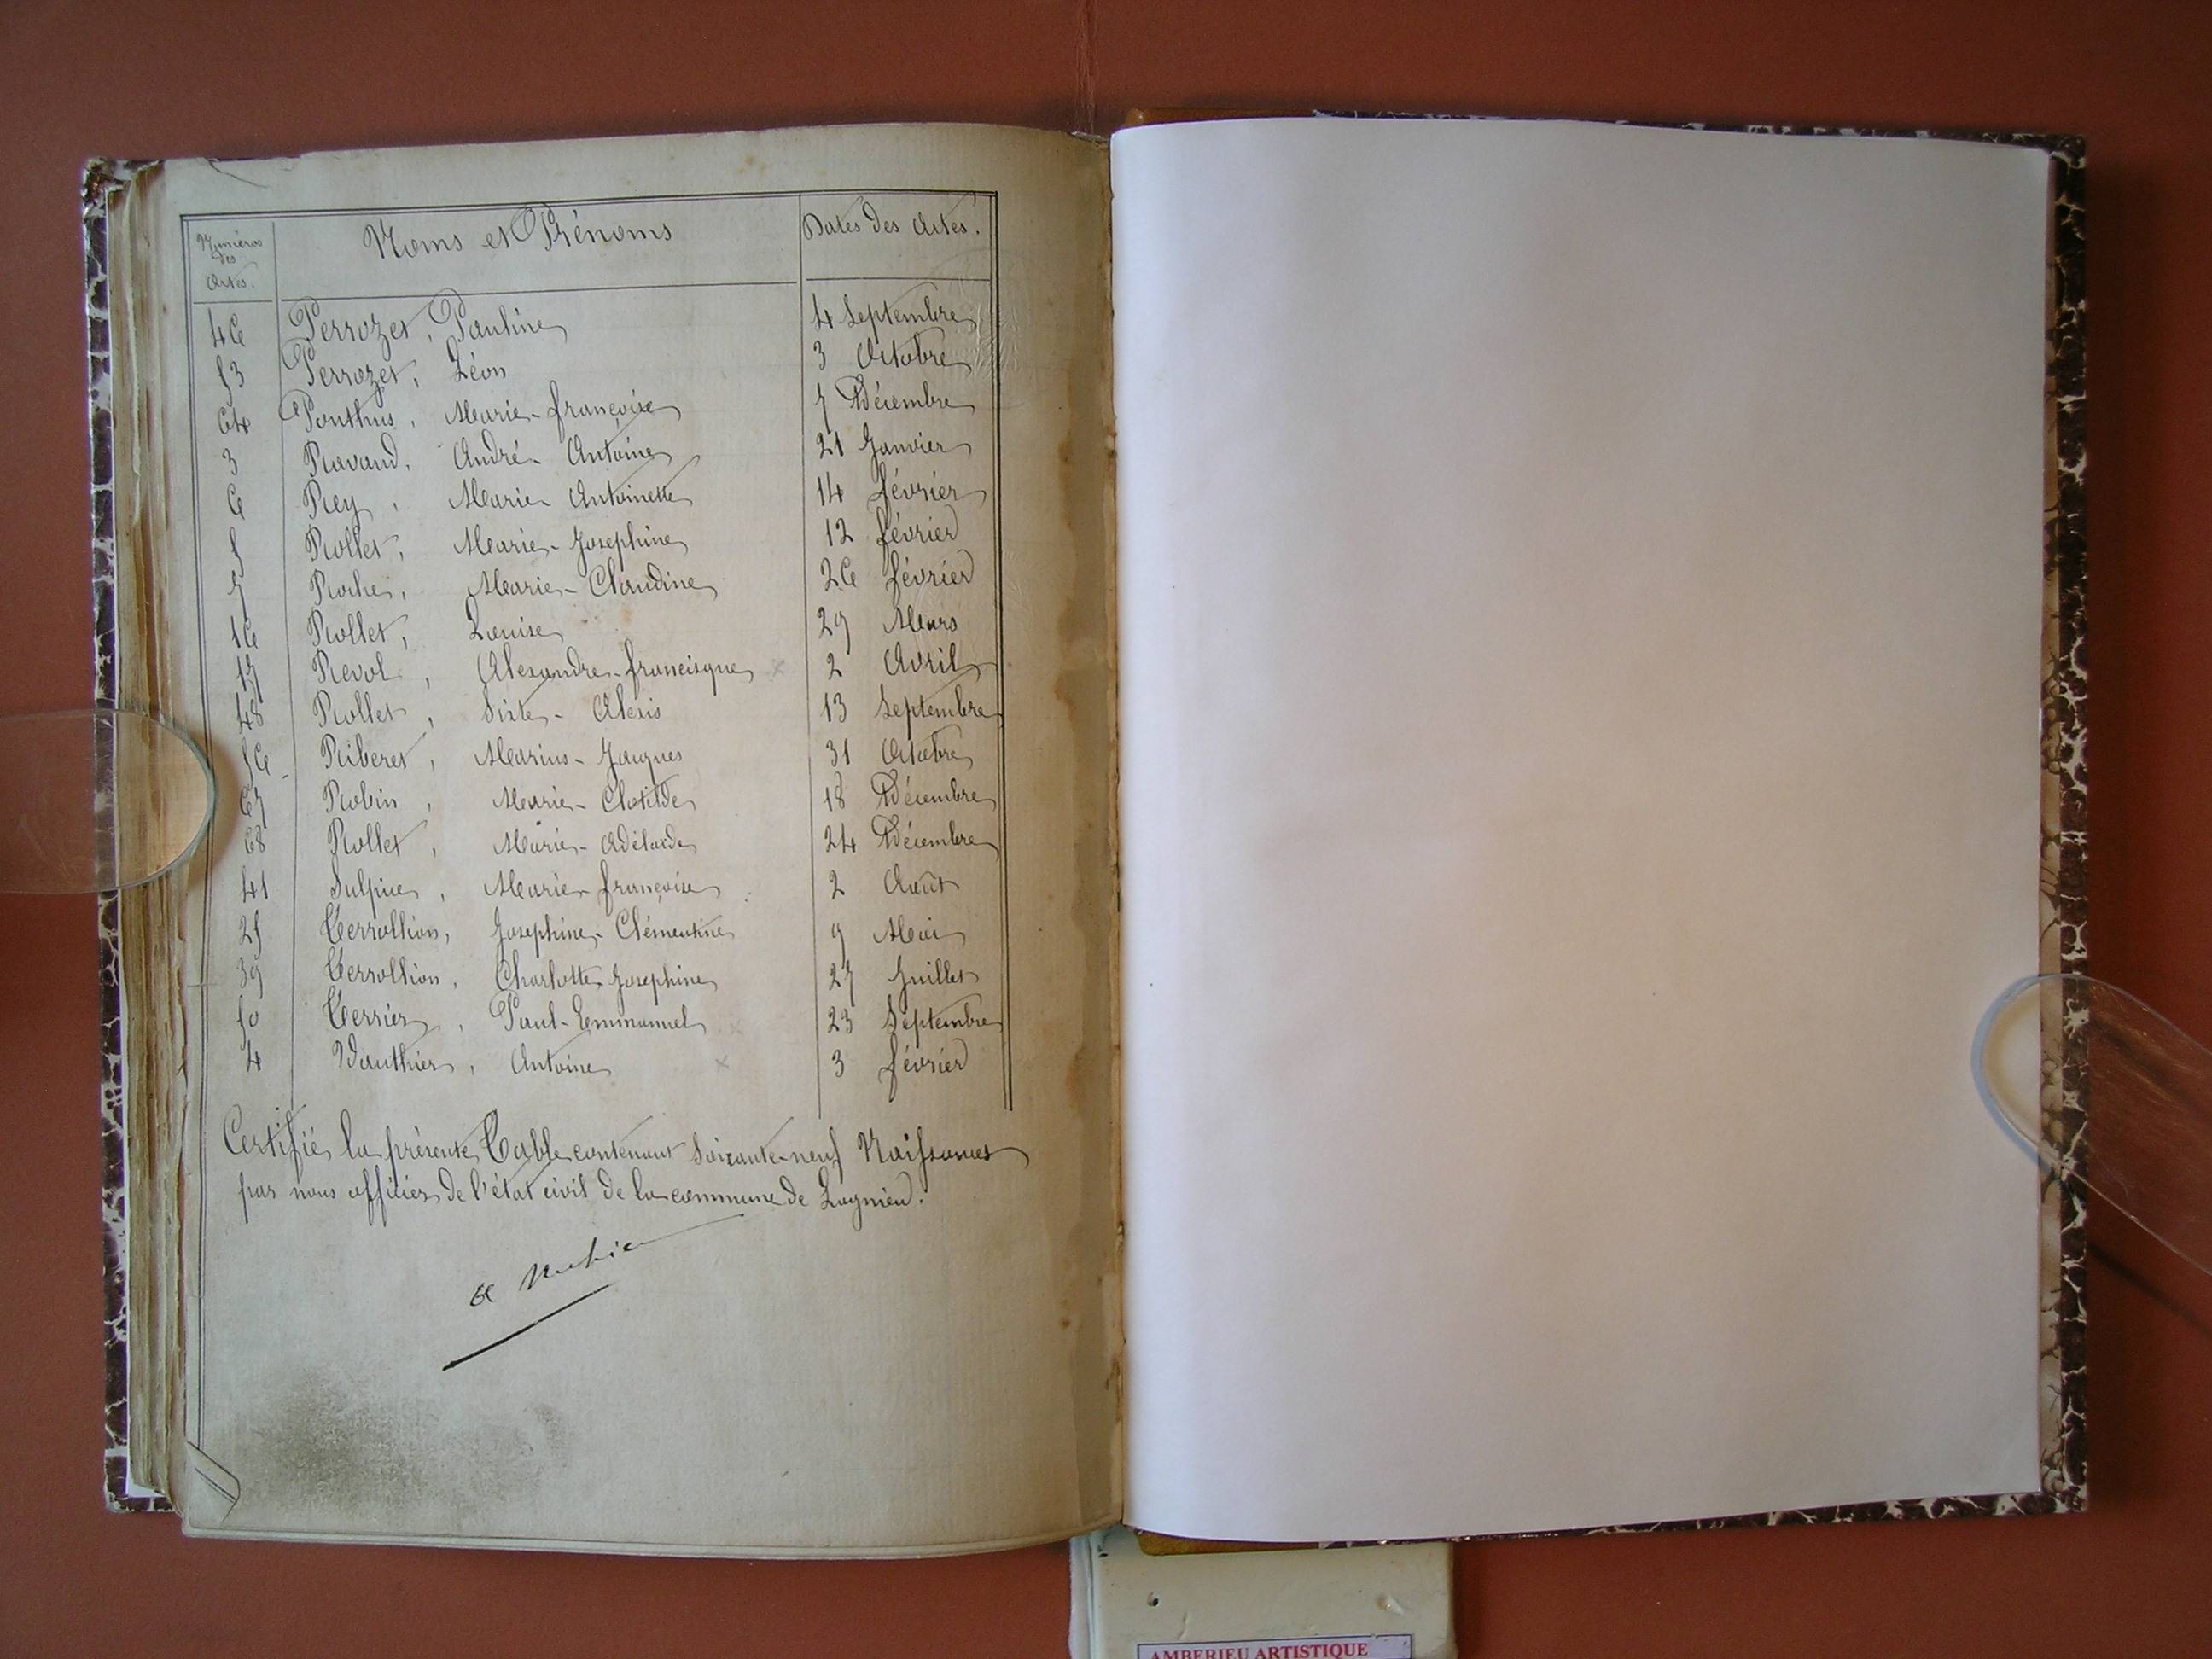 Numéros des Actes.
Noms et Prénoms
Dates des Actes.
46 Perrozet, Pauline 4 Septembre
53 Perrozet, Léon 3 Octobre
64 Ponthus, Marie-françoise 7 Décembre
3 Ravaud, André-Antoine 21 Janvier
6 Rey, Marie-Antoinette 14 février
5 Rollet, Marie-Josephine 12 février
7 Roche, Marie-Claudine 26 février
16 Rollet, Louise 29 Mars
17 Revol, Alexandre-francisque 2 Avril
48 Rollet, Sixte-Alexis 13 Septembre
56 Riberet, Marius-Jacques 31 Octobre
67 Robin, Marie-Clotilde 18 Décembre
68 Rollet, Marie-Adélaïde 24 Décembre
41 Sulpice, Marie-françoise 2 Août
25 Terrollion, Josephine-Clémentine 9 Mai
39 Terrollion, Charlotte-Josephine 27 Juillet
50 Terrier, Paul-Emmanuel 23 Septembre
4 Vauthier, Antoine 3 février
Certifié la présente Table contenant Soixante-neuf Naissances
par nous officier de l'état civil de la commune de Lagnieu.
AMBERIEU ARTISTIQUE